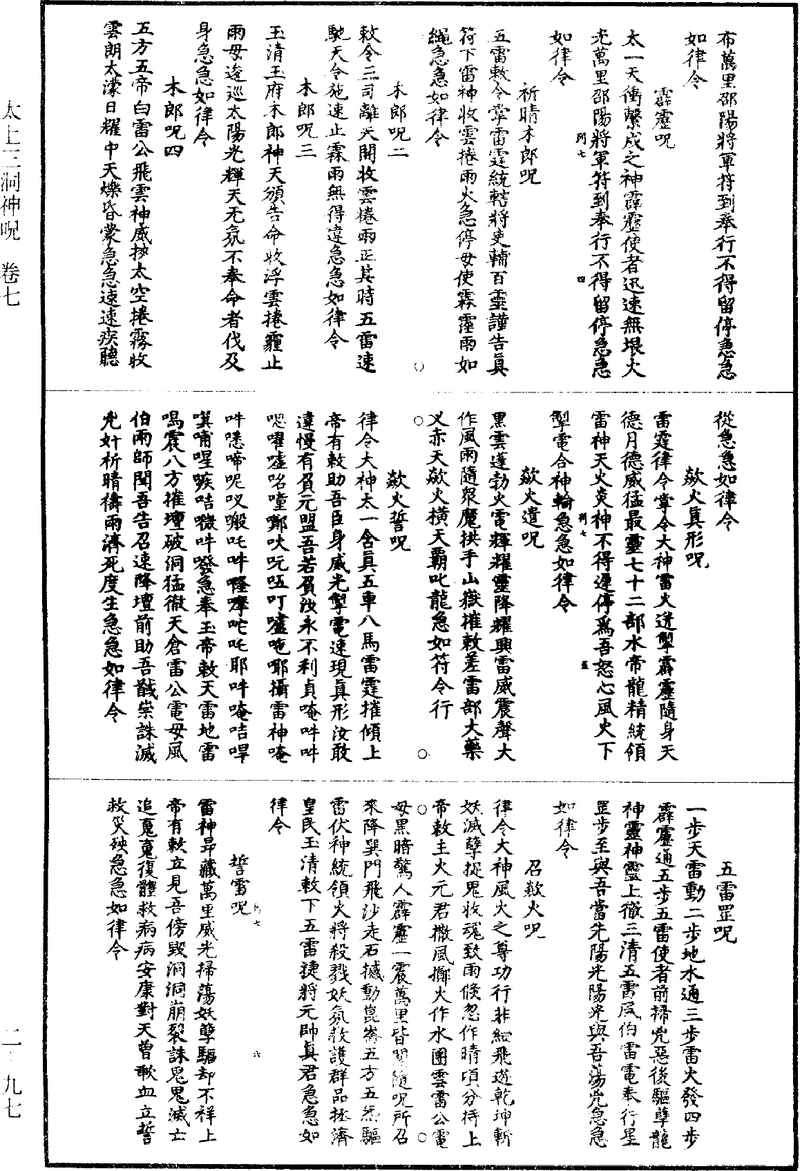 太上三洞神呪　卷七
二-九七
布萬里邵陽將軍符到奉行不得留停急急
如律令
霹靂呪
太一天衝繫成之神霹靂使者迅速無垠火
光萬里邵陽將軍符到奉行不得留停急急
如律令
祈晴木郎呪
五雷敕令掌雷霆統轄將吏輔百靈謹告真
符下雷神收雲捲雨火急停毋使霖霪雨如
繩急急如律令
木郎呪二
敕令三司離天開收雲捲雨正其時五雷速
馳天令施速止霖雨無得違急急如律令
木郎呪三
玉清王府木郎神天頒告命收浮雲捲霾止
雨毋逡巡太陽光輝天无氛不奉命者伐及
身急急如律令
木郎呪四
五方五帝白雷公飛雲神威按太空捲霧收
雲朗太濛日耀中天爍昏蒙急急速速疾聽
從急急如律令
歘火真形呪
雷霆律令掌令大神雷火迸掣霹靂隨身天
德月德威猛最靈七十二部水帝龍精統領
雷神天火炎神不得遲停為吾怒心風火下
掣電合神輪急急如律令
歘火遣呪
黑雲蓬勃火電輝耀靈降耀興雷威震聲大
作風雨隨眾魔拱手山嶽摧敕差雷部大藥
义赤天歘火橫天霸叱龍急如符令行
歘火誓呪
律令大神太一含真五車八馬雷霆摧傾上
帝有敕助吾臣身威光掣電速現真形汝敢
違慢有負元盟吾若負汝永不利貞唵吽吽
雷神唵
吽
唵咭
急奉玉帝敕天雷地雷
鳴震八方摧壇破洞猛徹天倉雷公電母風
伯雨師聞吾告召速降壇前助吾馘祟誅滅
兇奸祈晴禱雨濟死度生急急如律令
五雷罡呪
一步天雷動二步地水通三步雷火發四步
霹靂通五步五雷使者前掃兇惡後驅孽龍
神靈神靈上徹三清五雷風伯雷電奉行星
罡步至與吾當先陽光陽光與吾蕩兇急急
如律令
召歘火呪
律令大神風火之尊功行非紿飛遊乾坤斬
妖滅孽捉鬼收魂致雨倏忽作晴頃分待上
帝敕主火元君撒風擲火作水團雲雷公電
母黑暗驚人霹靂一震萬里皆聞隨呪所召
來降巽門飛沙走石撼動崑崙五方五炁驅
雷伏神統領火將殺戮妖氛救護群品拯濟
皇民玉清敕下五雷捷將元帥真君急急如
律令
誓雷呪
雷神昂藏萬里威光掃蕩妖孽驅却不祥上
帝有敕立見吾傍毀洞洞崩裂誅鬼鬼滅亡
追魂魂復體救病病安康對天曾歃血立誓
救災殃急急如律令